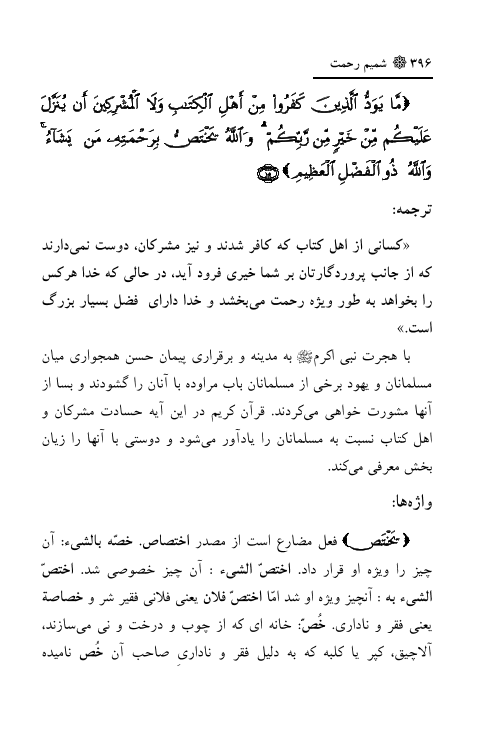 ۳۹۶ ❁ شمیم رحمت
﴿مَّا يَوَدُّ الَّذِينَ كَفَرُواْ مِنْ أَهْلِ الْكِتَابِ وَلَا الْمُشْرِكِينَ أَن يُنَزَّلَ
عَلَيْكُم مِّنْ خَيْرٍ مِّن رَّبِّكُمْ ۗ وَاللَّهُ يَخْتَصُّ بِرَحْمَتِهِ مَن يَشَآءُ ۚ
وَاللَّهُ ذُو الْفَضْلِ الْعَظِيمِ﴾
ترجمه:
«کسانی از اهل کتاب که کافر شدند و نیز مشرکان، دوست نمی‌دارند
که از جانب پروردگارتان بر شما خیری فرود آید، در حالی که خدا هرکس
را بخواهد به طور ویژه رحمت می‌بخشد و خدا دارای فضل بسیار بزرگ
است.»
با هجرت نبی اکرمﷺ به مدینه و برقراری پیمان حسن همجواری میان
مسلمانان و یهود برخی از مسلمانان باب مراوده با آنان را گشودند و بسا از
آنها مشورت خواهی می‌کردند. قرآن کریم در این آیه حسادت مشرکان و
اهل کتاب نسبت به مسلمانان را یادآور می‌شود و دوستی با آنها را زیان
بخش معرفی می‌کند.
واژه‌ها:
﴿يَخْتَص﴾ فعل مضارع است از مصدر اختصاص. خصّه بالشیء: آن
چیز را ویژه او قرار داد. اختصّ الشیء : آن چیز خصوصی شد. اختصّ
الشیء به : آنچیز ویژه او شد امّا اختصّ فلان یعنی فلانی فقیر شر و خصاصة
یعنی فقر و ناداری. خُصّ: خانه ای که از چوب و درخت و نی می‌سازند،
آلاچیق، کپر یا کلبه که به دلیل فقر و ناداریِ صاحب آن خُص نامیده